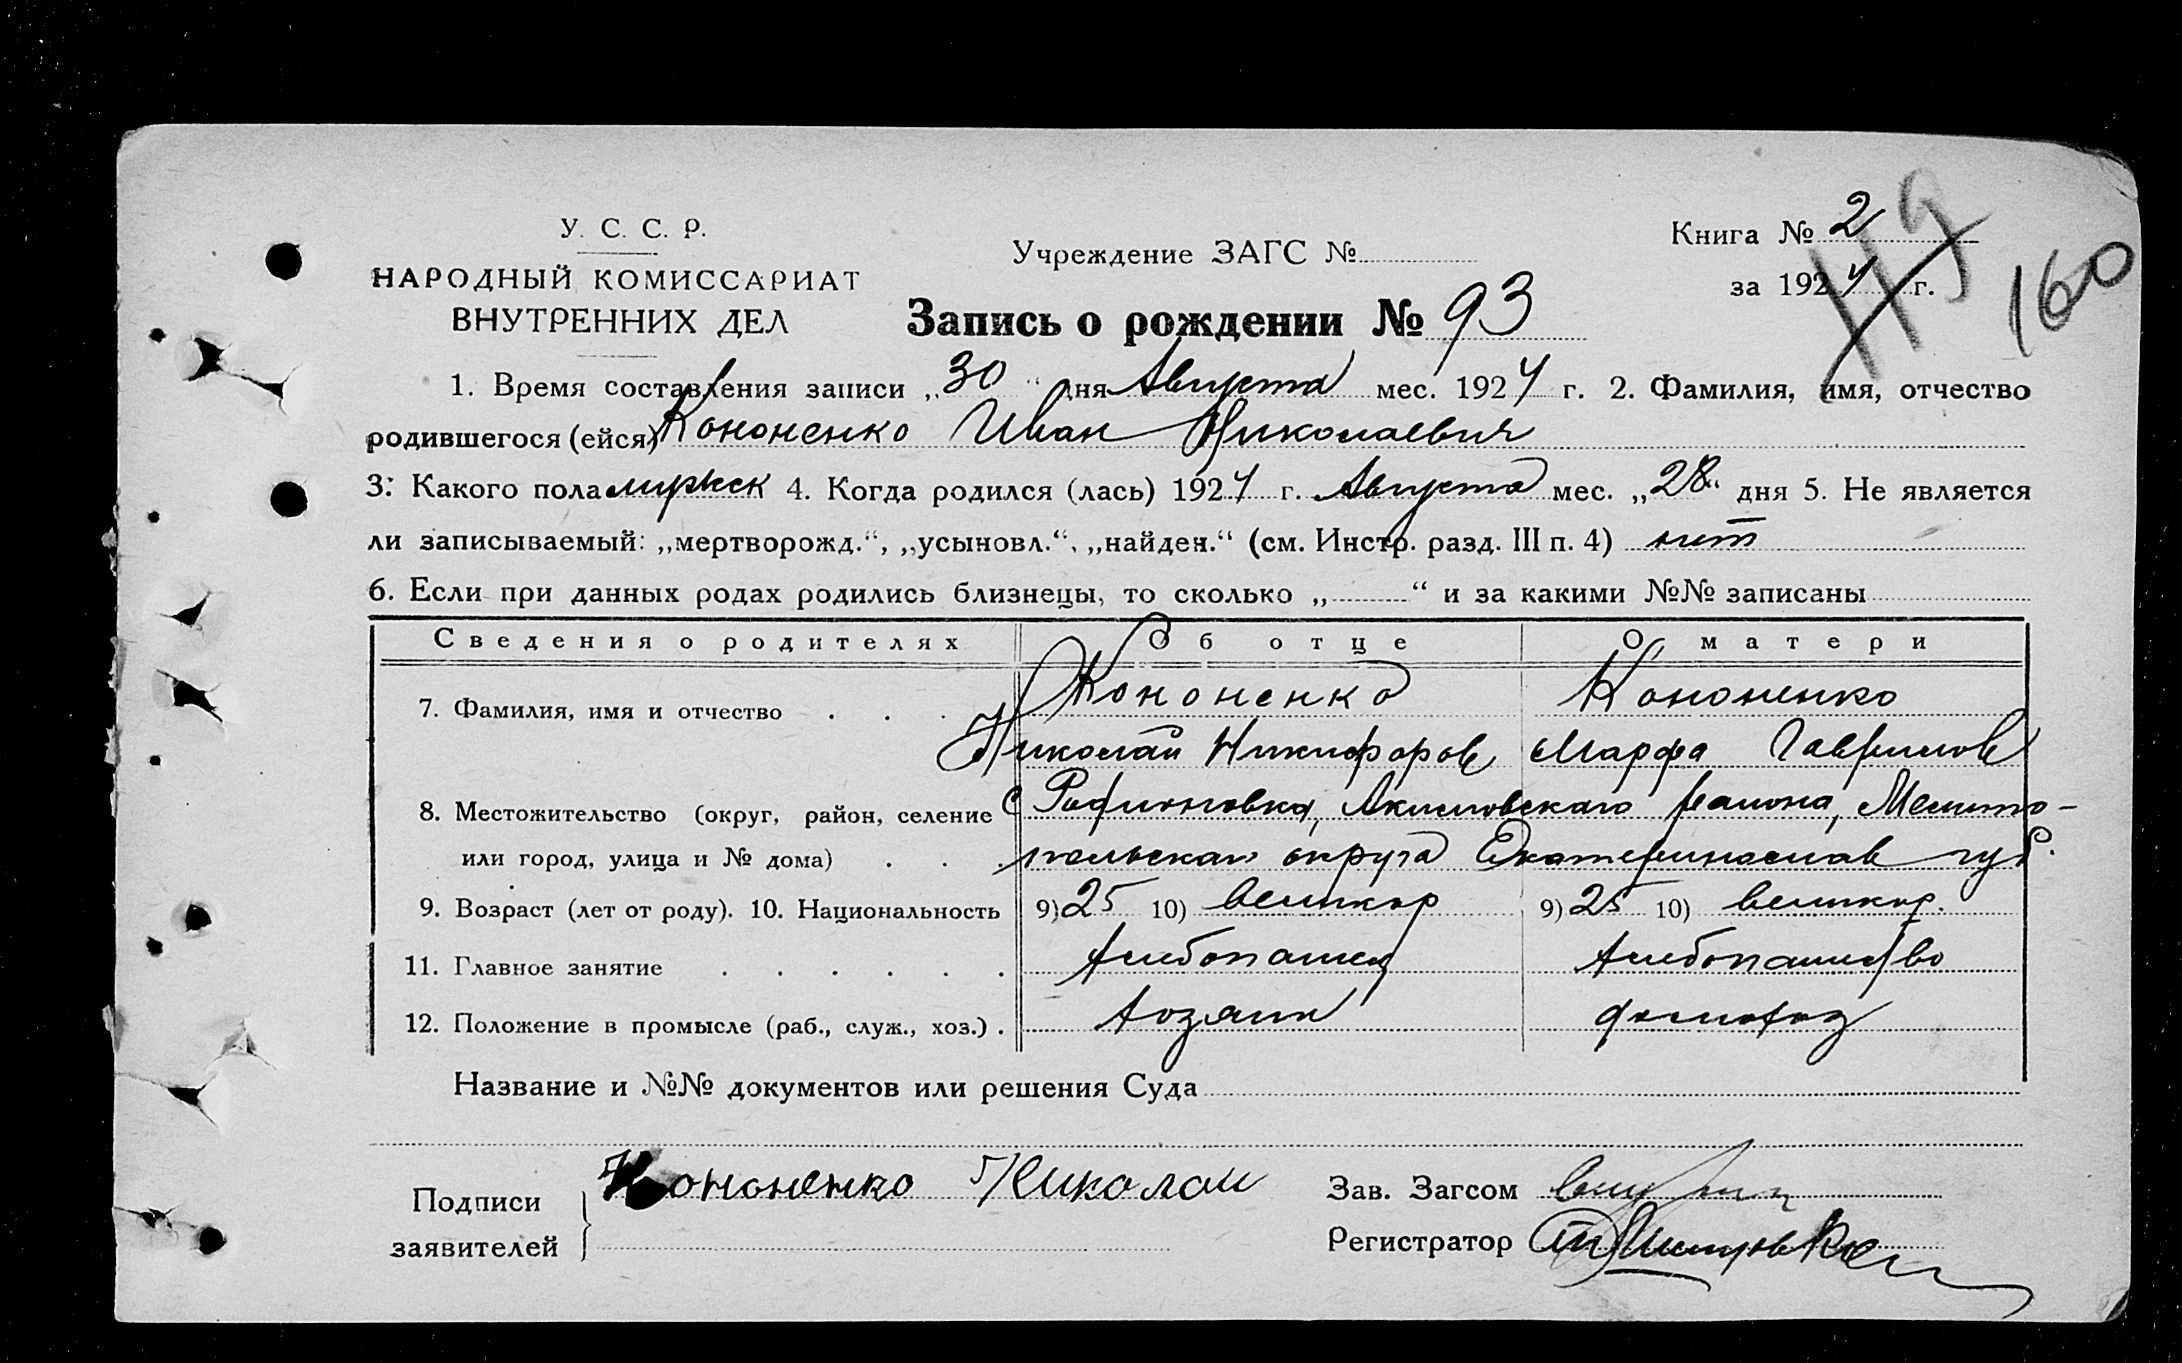 У. С. С. Р.
НАРОДНЫЙ КОМИССАРИАТ
ВНУТРЕННИХ ДЕЛ
Учреждение ЗАГС №
Книга № 2
за 1924 г.
119
160
Запись о рождении № 93
1. Время составления записи „30“ дня Августа мес. 1924 г. 2. Фамилия, имя, отчество
родившегося (ейся) Кононенко Иван Николаевич
3. Какого пола мужск 4. Когда родился (лась) 1924 г. Августа мес. „28“ дня 5. Не является
ли записываемый: „мертворожд.“, „усыновл.“, „найден.“ (см. Инстр. разд. III п. 4) нет
6. Если при данных родах родились близнецы, то сколько „ “ и за какими №№ записаны
Сведения о родителях Об отце О матери
7. Фамилия, имя и отчество . . . Кононенко Кононенко
Николай Никифоров Марфа Гаврилов
8. Местожительство (округ, район, селение с Родионовка, Акимовскаго района, Мелито-
или город, улица и № дома) . . . польскаго округа Екатеринослав губ.
9. Возраст (лет от роду). 10. Национальность 9) 25 10) великор 9) 25 10) великор.
11. Главное занятие . . . . . . Хлебопашец Хлебопашество
12. Положение в промысле (раб., служ., хоз.) . хозяин домохоз
Название и №№ документов или решения Суда
Подписи
заявителей
Кононенко Николай
Зав. Загсом
Регистратор